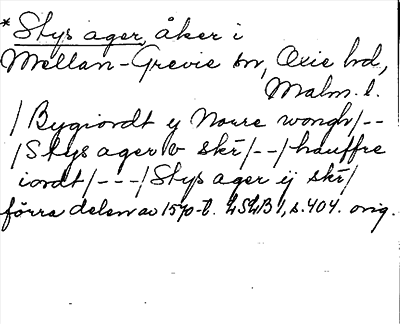 * Stys ager, åker i
Mellan-Grevie sn, Oxie hd,
Malm. l.
/Bygiordt ij Norre wongh/--
/Stys ager v skr/--/hauffre
iordt/---/Stys ager ij skr/
förra delen av 1570-t. LSLB 1, s. 404. orig.